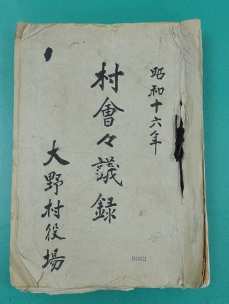 昭和十六年
村會々議録
大野村役場